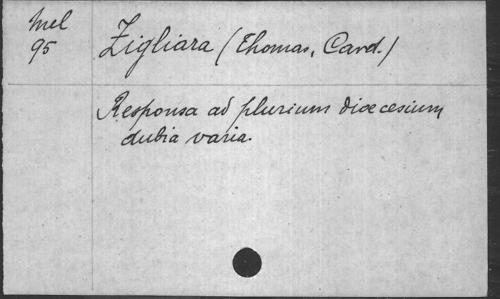 Mel
95
Zigliara (Thomas, Card.)
Responsa ad plurium dioecesium
dubia varia.